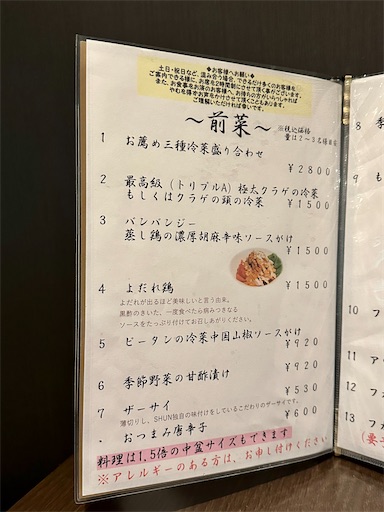 ◆お客様へお願い◆
土日・祝日など、混み合う場合、できるだけ多くのお客様を
ご案内できる様に、お席を2時間制にさせて頂く事がございます。
また、お食事をお済のお客様へ、お待ちの方がいらっしゃれば
やむを得ずお声をかけさせて頂くこともあります。
ご理解いただければ幸いです。
～前菜～
※税込価格
量は2～3名様目安
1 お薦め三種冷菜盛り合わせ
¥2800
2 最高級(トリプルA)極太クラゲの冷菜
もしくはクラゲの頭の冷菜 ¥1500
3 バンバンジー
蒸し鶏の濃厚胡麻辛味ソースがけ
¥1500
4 よだれ鶏 ¥1500
よだれが出るほど美味しいと言う由来。
黒酢のきいた、一度食べたら病みつきなる
ソースをたっぷり付けてお召しあがりください。
5 ピータンの冷菜中国山椒ソースがけ
¥920
6 季節野菜の甘酢漬け ¥920
7 ザーサイ ¥530
薄切りし、SHUN独自の味付けをしているこだわりのザーサイです。
・ おつまみ唐辛子 ¥600
料理は1.5倍の中盆サイズもできます
※アレルギーのある方は、お申し付けください
8 季
9 も
10
11
12 フ
13 フ